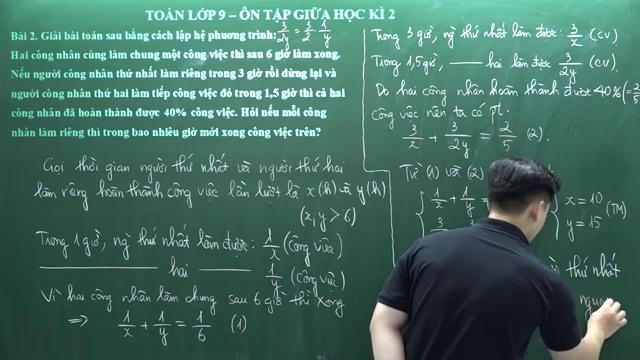 TOÁN LỚP 9 – ÔN TẬP GIỮA HỌC KÌ 2
Bài 2. Giải bài toán sau bằng cách lập hệ phương trình: 3/2y = 3/2 · 1/y
Hai công nhân cùng làm chung một công việc thì sau 6 giờ làm xong.
Nếu người công nhân thứ nhất làm riêng trong 3 giờ rồi dừng lại và
người công nhân thứ hai làm tiếp công việc đó trong 1,5 giờ thì cả hai
công nhân đã hoàn thành được 40% công việc. Hỏi nếu mỗi công
nhân làm riêng thì trong bao nhiêu giờ mới xong công việc trên?
Gọi thời gian người thứ nhất và người thứ hai
làm riêng hoàn thành công việc lần lượt là x (h) và y (h)
(x, y > 6)
Trong 1 giờ, ng thứ nhất làm được: 1/x (công việc)
hai 1/y (công việc)
Vì hai công nhân làm chung sau 6 giờ thì xong
⇒ 1/x + 1/y = 1/6 (1)
Trong 3 giờ, ng thứ nhất làm được: 3/x (cv)
Trong 1,5 giờ, hai làm được 3/2y (cv)
Do hai công nhân hoàn thành được 40% (= 2/5)
công việc nên ta có pt.
3/x + 3/2y = 2/5 (2).
Từ (1) và (2)
1/x + 1/y = x = 10 (TM)
3 y = 15
thứ nhất